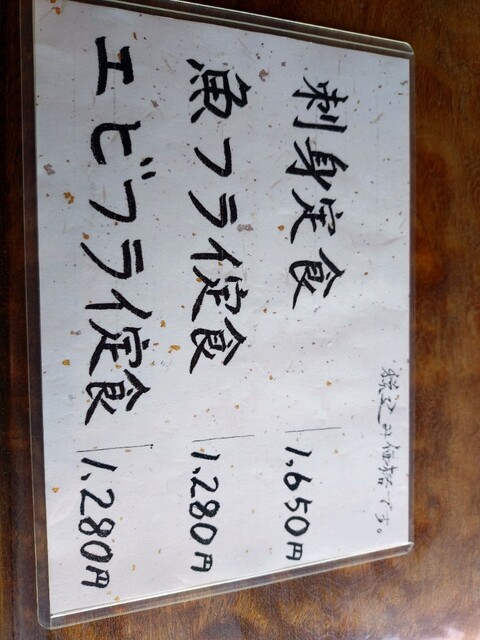 刺身定食 1,650円
魚フライ定食 1,280円
エビフライ定食 1,280円
税込み価格です。